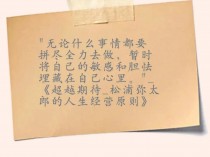 "无论什么事情都要
拼尽全力去做，暂时
将自己的敏感和胆怯
埋藏在自己心里。"_
《超越期待_松浦弥太
郎的人生经营原则》